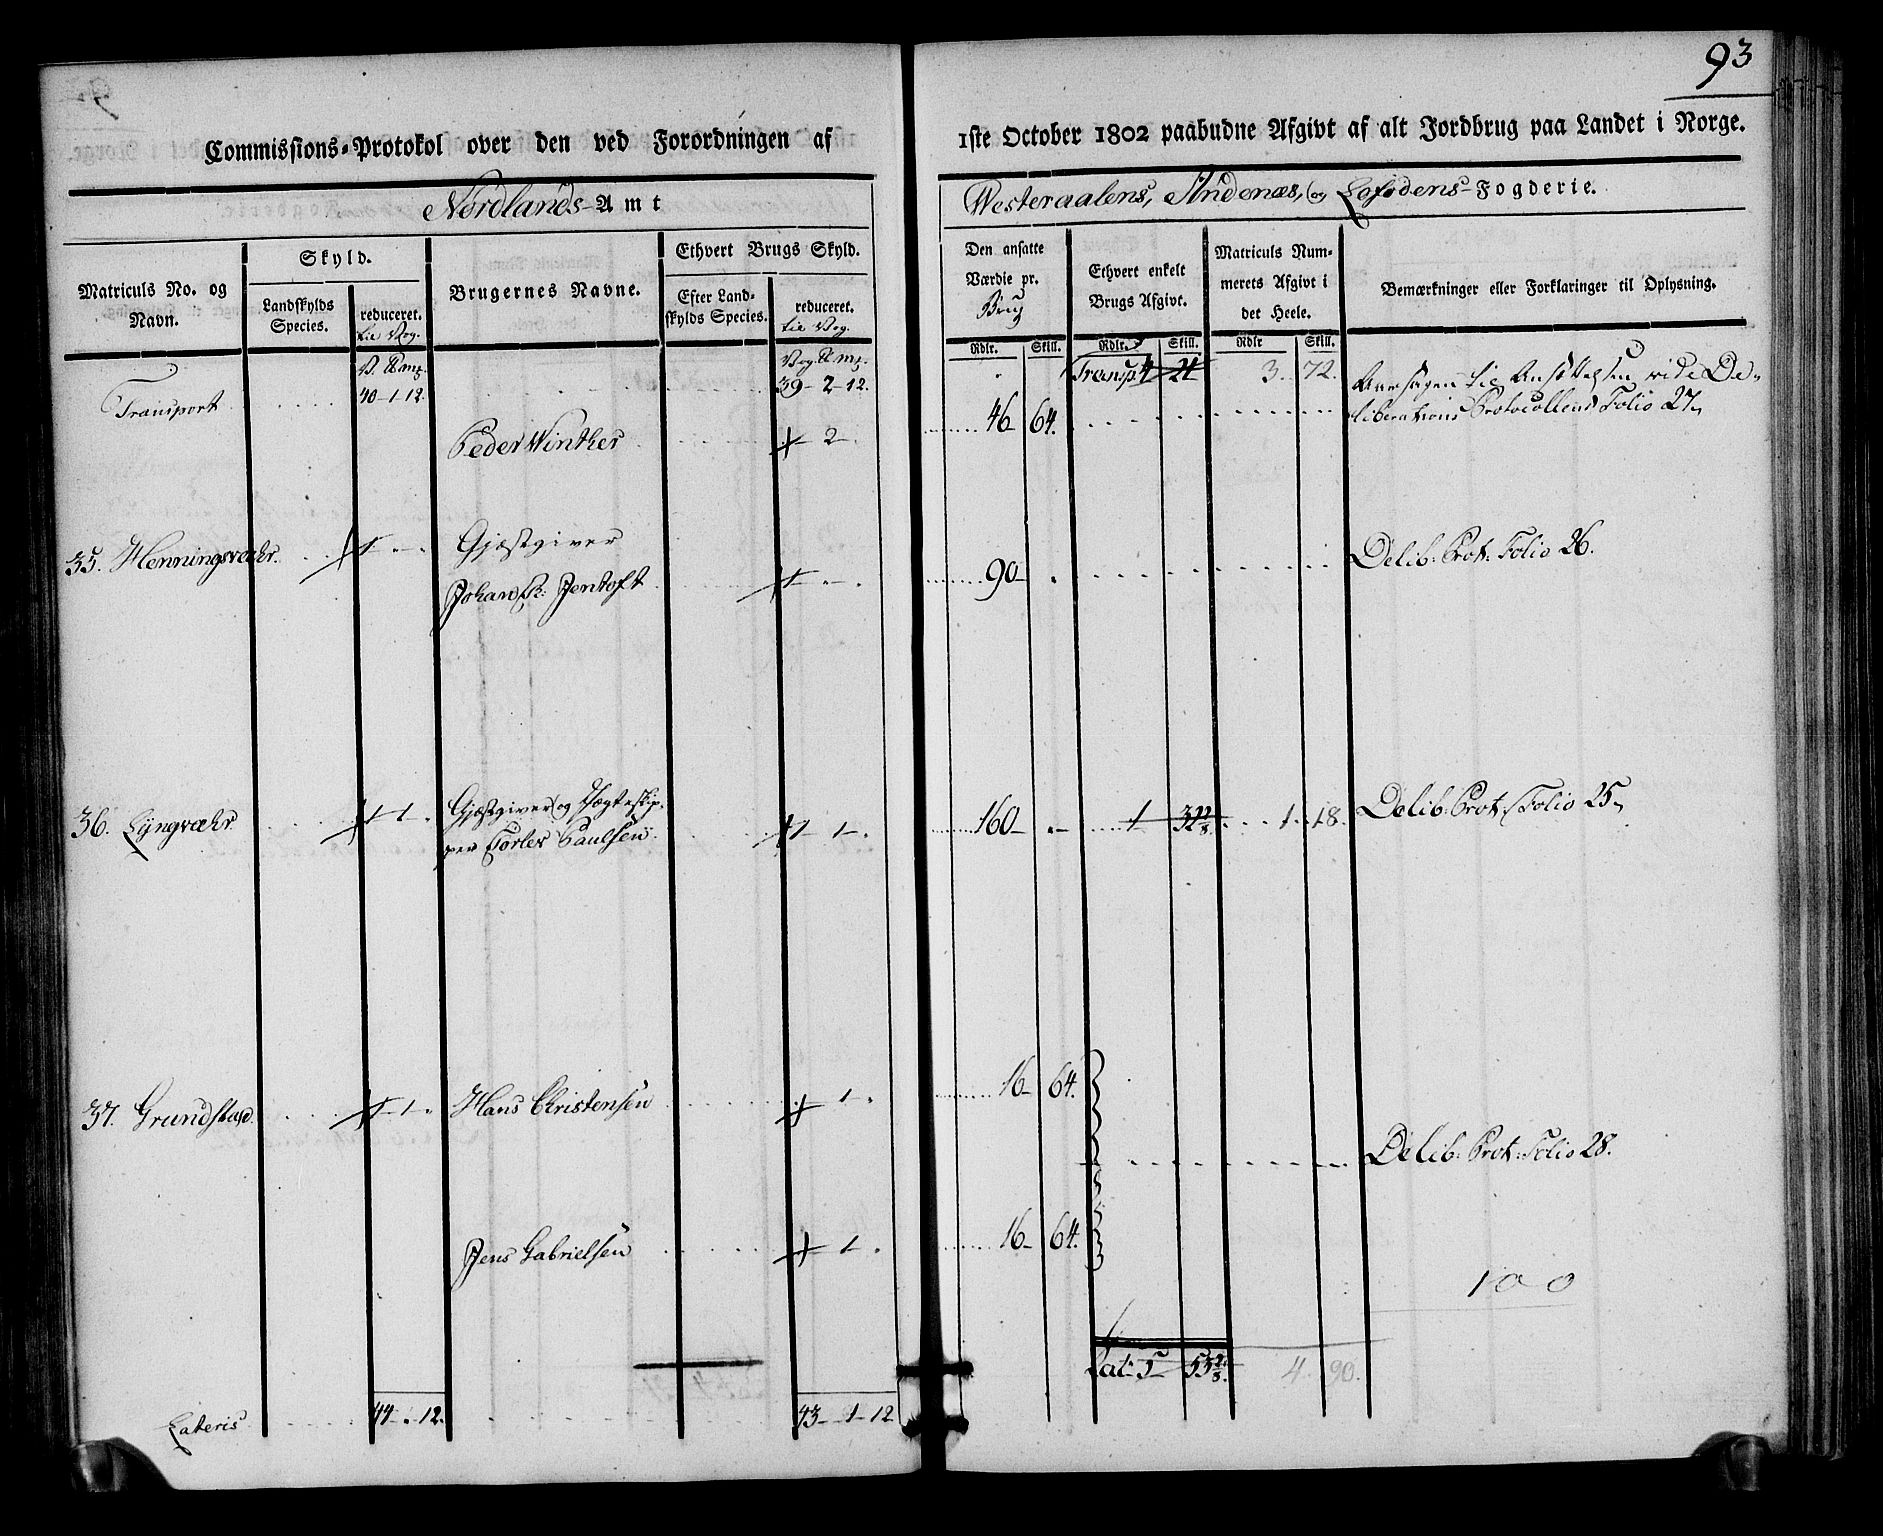 93
Commissions-Protokol over den ved Forordningen af
1ste October 1802 paabudne Afgivt af alt Jordbrug paa Landet i Norge.
Nordlands-Amt
Westeraalens, Andenæs, og Lofodens-Fogderie.
Matriculs No. og Navn.
Skyld.
Landskylds Species.
reduceret. til Vog.
Brugernes Navne.
Ethvert Brugs Skyld.
Efter Landskylds Species.
reduceret. til Vog.
Den ansatte Værdie pr. Brug
Ethvert enkelt Brugs Afgivt.
Matriculs Nummerets Afgivt i det Heele.
Bemærkninger eller Forklaringer til Oplysning.
Rdlr. Skill. Rdlr. Skill. Rdlr Skill.
Transport 40-1-12. 39-2-12. Transp. 4 21 3. 72.
Peder Winther 2 46 64. Aarsagen til Ansættelsen vide De-
liberations Protocollens Folio 27
35. Henningsvæhr. 1 Gjæstgiver
Johan Jentoft 1 90 Delib: Prot: Folio 26.
36. Lyngvæhr 1-1. Gjæstgiver og Jægteskip-
per Torler Paulsen 1-1 160 1 1. 18. Delib: Prot: Folio 25
37. Grundstad. 1-1. Hans Christensen 1. 16 64.
Delib: Prot: Folio 28.
Jens Gabrielsen 1. 16 64.
100
Lat: 5 4 90.
Lateris 44 . 12. 43-1-12